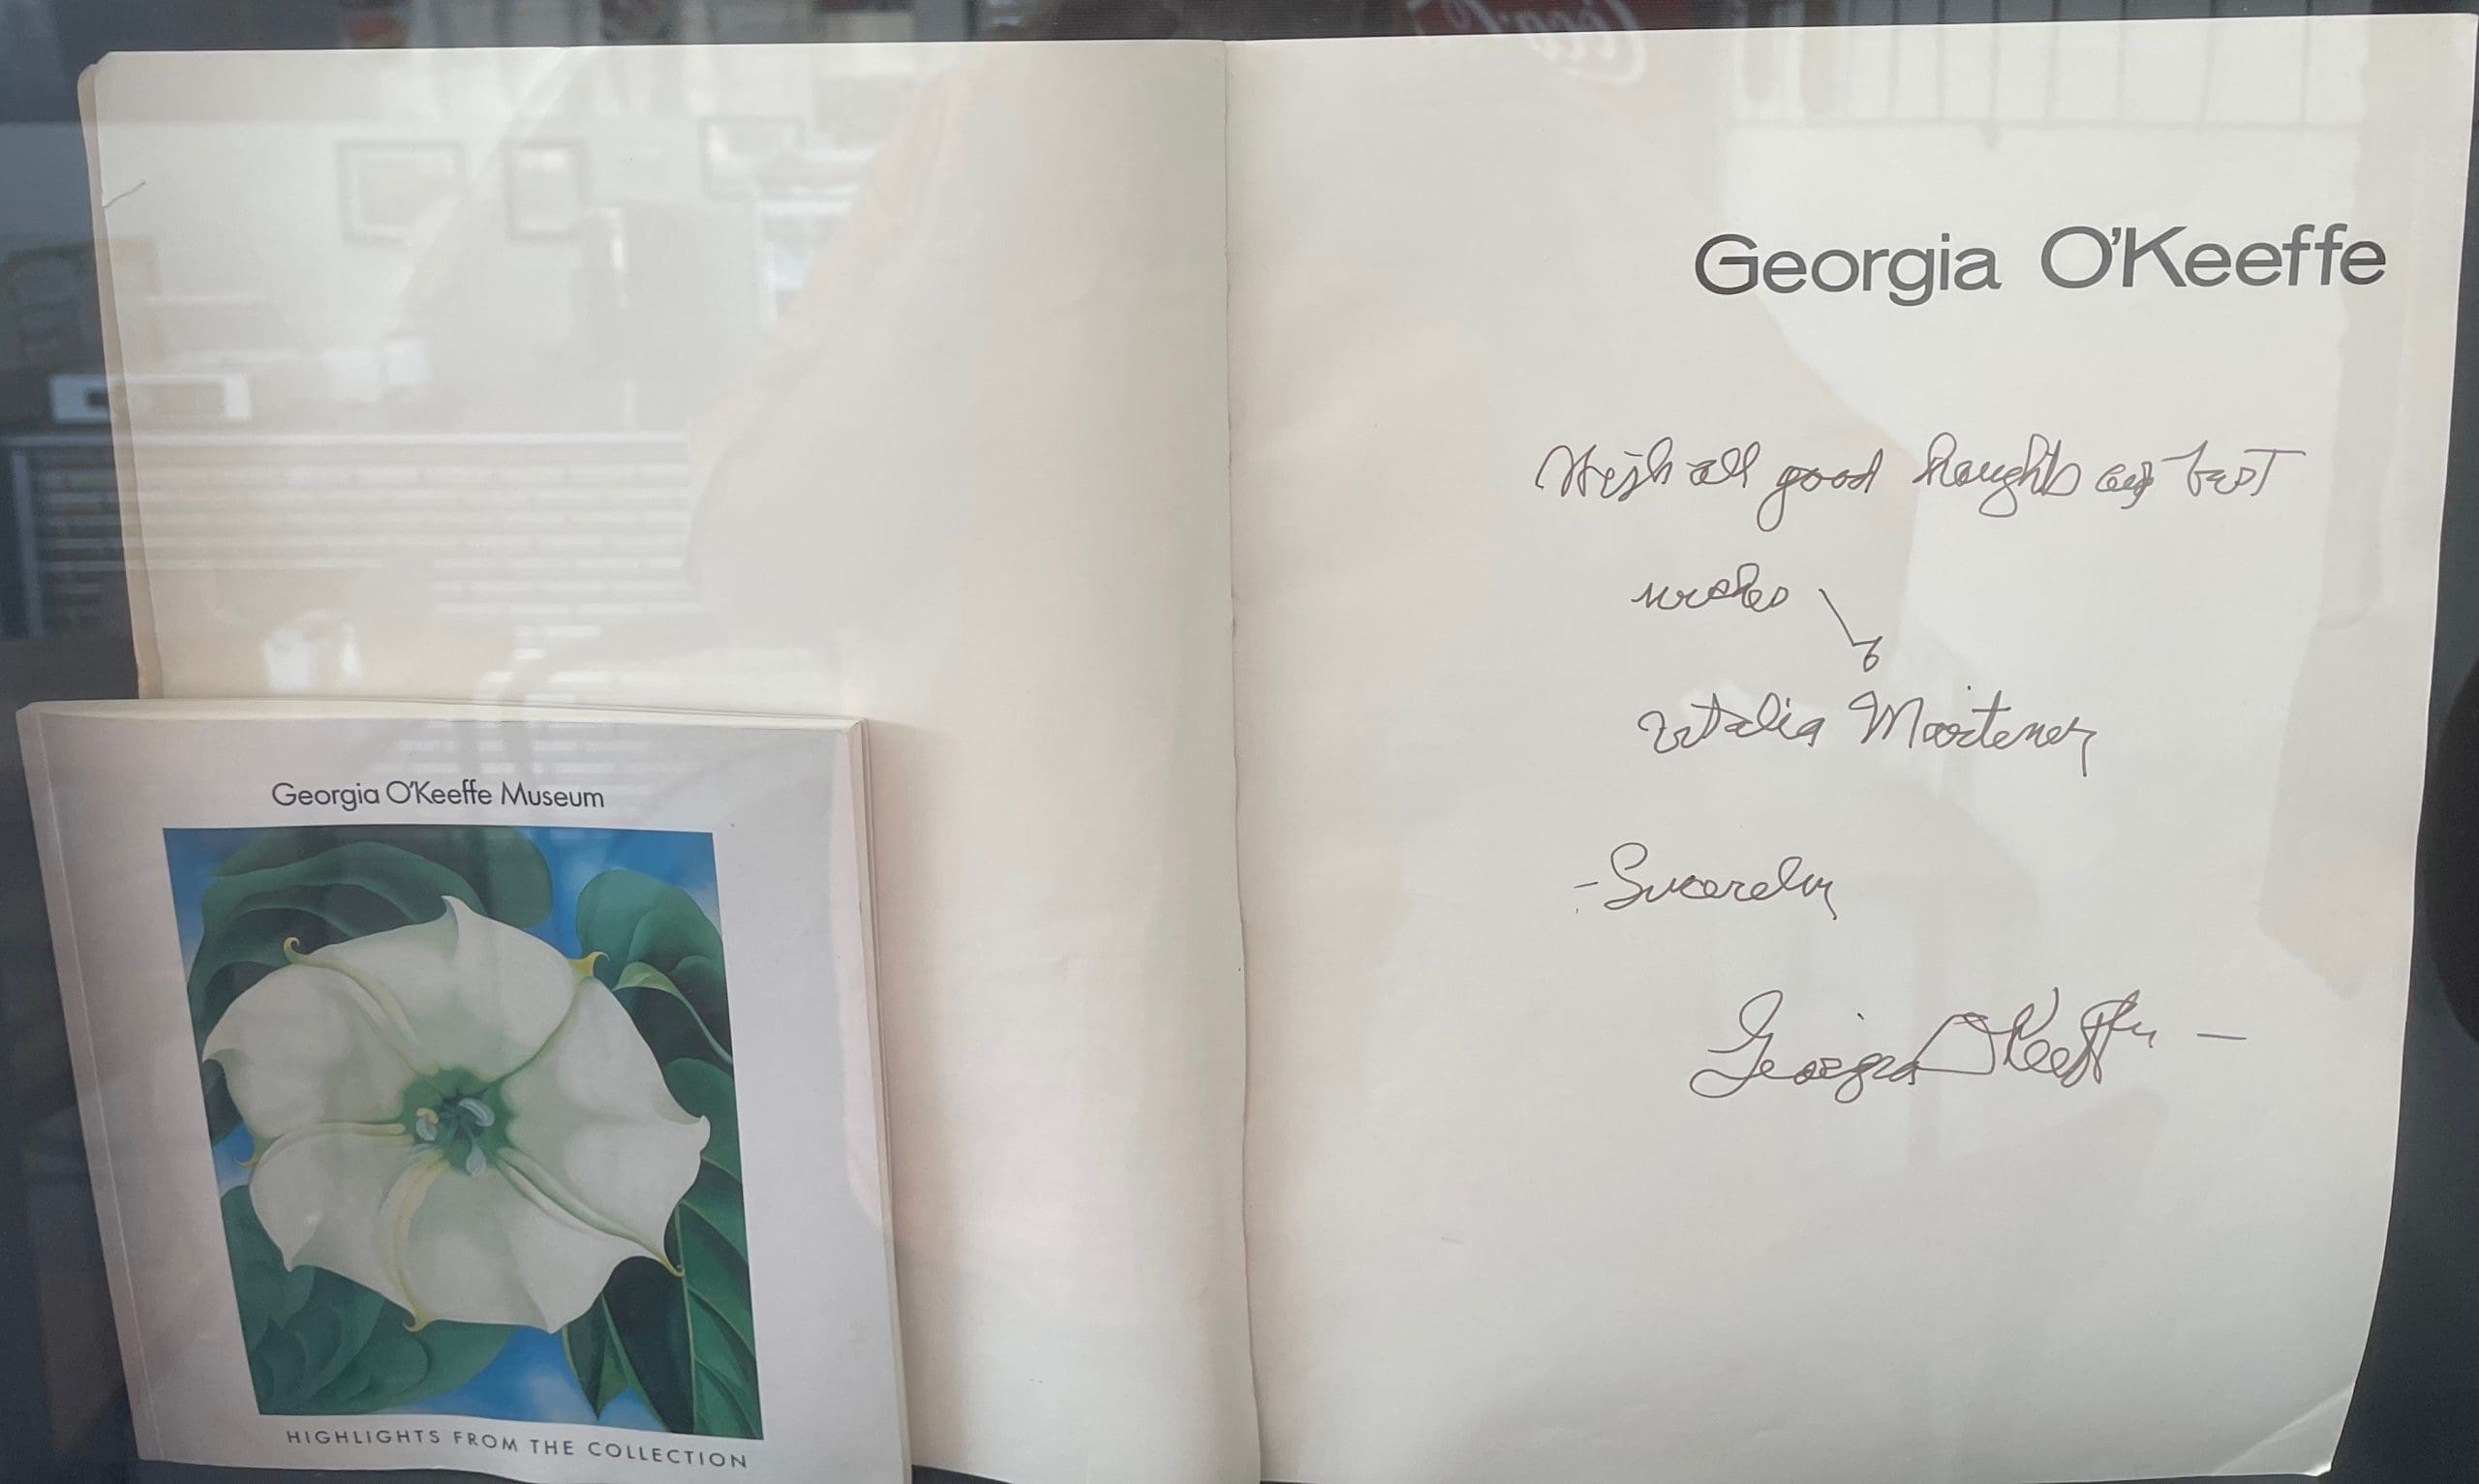 Georgia O'Keeffe
With all good thoughts and best
wishes to
Martenez
-Sincerely
Georgia O'Keeffe —
Georgia O'Keeffe Museum
HIGHLIGHTS FROM THE COLLECTION